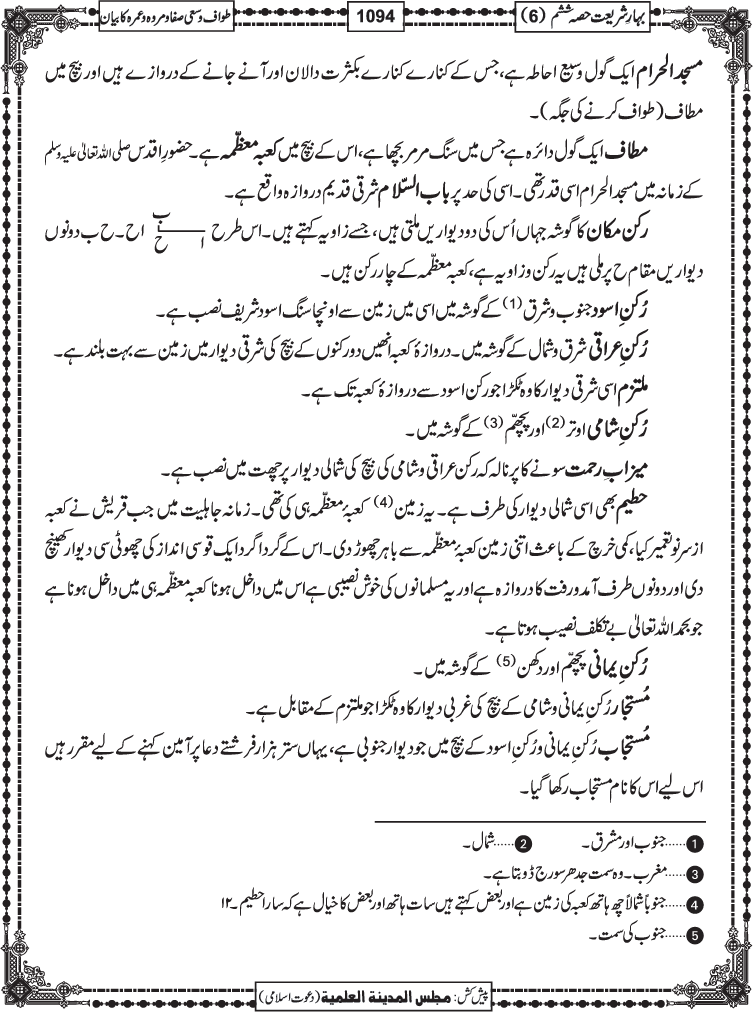 بہارِ شریعت حصہ ششم (6)
1094
طواف و سعی صفا و مروہ و عمرہ کا بیان
مسجد الحرام ایک گول وسیع احاطہ ہے، جس کے کنارے کنارے بکثرت دالان اور آنے جانے کے دروازے ہیں اور بیچ میں
مطاف (طواف کرنے کی جگہ)۔
مطاف ایک گول دائرہ ہے جس میں سنگ مرمر بچھا ہے، اس کے بیچ میں کعبہ معظّمہ ہے۔ حضورِ اقدس صلی اللہ تعالیٰ علیہ وسلم
کے زمانہ میں مسجد الحرام اسی قدر تھی۔ اسی کی حد پر باب السّلام شرقی قدیم دروازہ واقع ہے۔
رکن مکان کا گوشہ جہاں اُس کی دو دیواریں ملتی ہیں، جسے زاویہ کہتے ہیں۔ اس طرح ب ا ح اح۔ ح ب دونوں
دیواریں مقام ح پر ملی ہیں یہ رکن و زاویہ ہے، کعبہ معظّمہ کے چار رکن ہیں۔
رُکنِ اسود جنوب و شرق (1) کے گوشہ میں اسی میں زمین سے اونچا سنگ اسود شریف نصب ہے۔
رُکنِ عراقی شرق و شمال کے گوشہ میں۔ دروازۂ کعبہ انھیں دو رکنوں کے بیچ کی شرقی دیوار میں زمین سے بہت بلند ہے۔
ملتزم اسی شرقی دیوار کا وہ ٹکڑا جو رکن اسود سے دروازۂ کعبہ تک ہے۔
رُکنِ شامی اوتر (2) اور پچھّم (3) کے گوشہ میں۔
میزابِ رحمت سونے کا پرنالہ کہ رکن عراقی و شامی کی بیچ کی شمالی دیوار پر چھت میں نصب ہے۔
حطیم بھی اسی شمالی دیوار کی طرف ہے۔ یہ زمین (4) کعبۂ معظّمہ ہی کی تھی۔ زمانہ جاہلیت میں جب قریش نے کعبہ
از سرِ نو تعمیر کیا، کمی خرچ کے باعث اتنی زمین کعبۂ معظّمہ سے باہر چھوڑ دی۔ اس کے گردا گرد ایک قوسی انداز کی چھوٹی سی دیوار کھینچ
دی اور دونوں طرف آمد ورفت کا دروازہ ہے اور یہ مسلمانوں کی خوش نصیبی ہے اس میں داخل ہونا کعبہ معظّمہ ہی میں داخل ہونا ہے
جو بحمد اللہ تعالیٰ بے تکلف نصیب ہوتا ہے۔
رُکنِ یمانی پچھّم اور دکھن (5) کے گوشہ میں۔
مُستجار رُکنِ یمانی و شامی کے بیچ کی غربی دیوار کا وہ ٹکڑا جو ملتزم کے مقابل ہے۔
مُستجاب رُکنِ یمانی و رُکنِ اسود کے بیچ میں جو دیوار جنوبی ہے، یہاں ستر ہزار فرشتے دعا پر آمین کہنے کے لیے مقرر ہیں
اس لیے اس کا نام مستجاب رکھا گیا۔
1 ......جنوب اور مشرق۔ 2 ......شمال۔
3 ......مغرب۔ وہ سمت جدھر سورج ڈوبتا ہے۔
4 ......جنوباً شمالاً چھ ہاتھ کعبہ کی زمین ہے اور بعض کہتے ہیں سات ہاتھ اور بعض کا خیال ہے کہ سارا حطیم۔ ۱۲
5 ......جنوب کی سمت۔
پیش کش: مجلس المدينة العلمية (دعوت اسلامی)